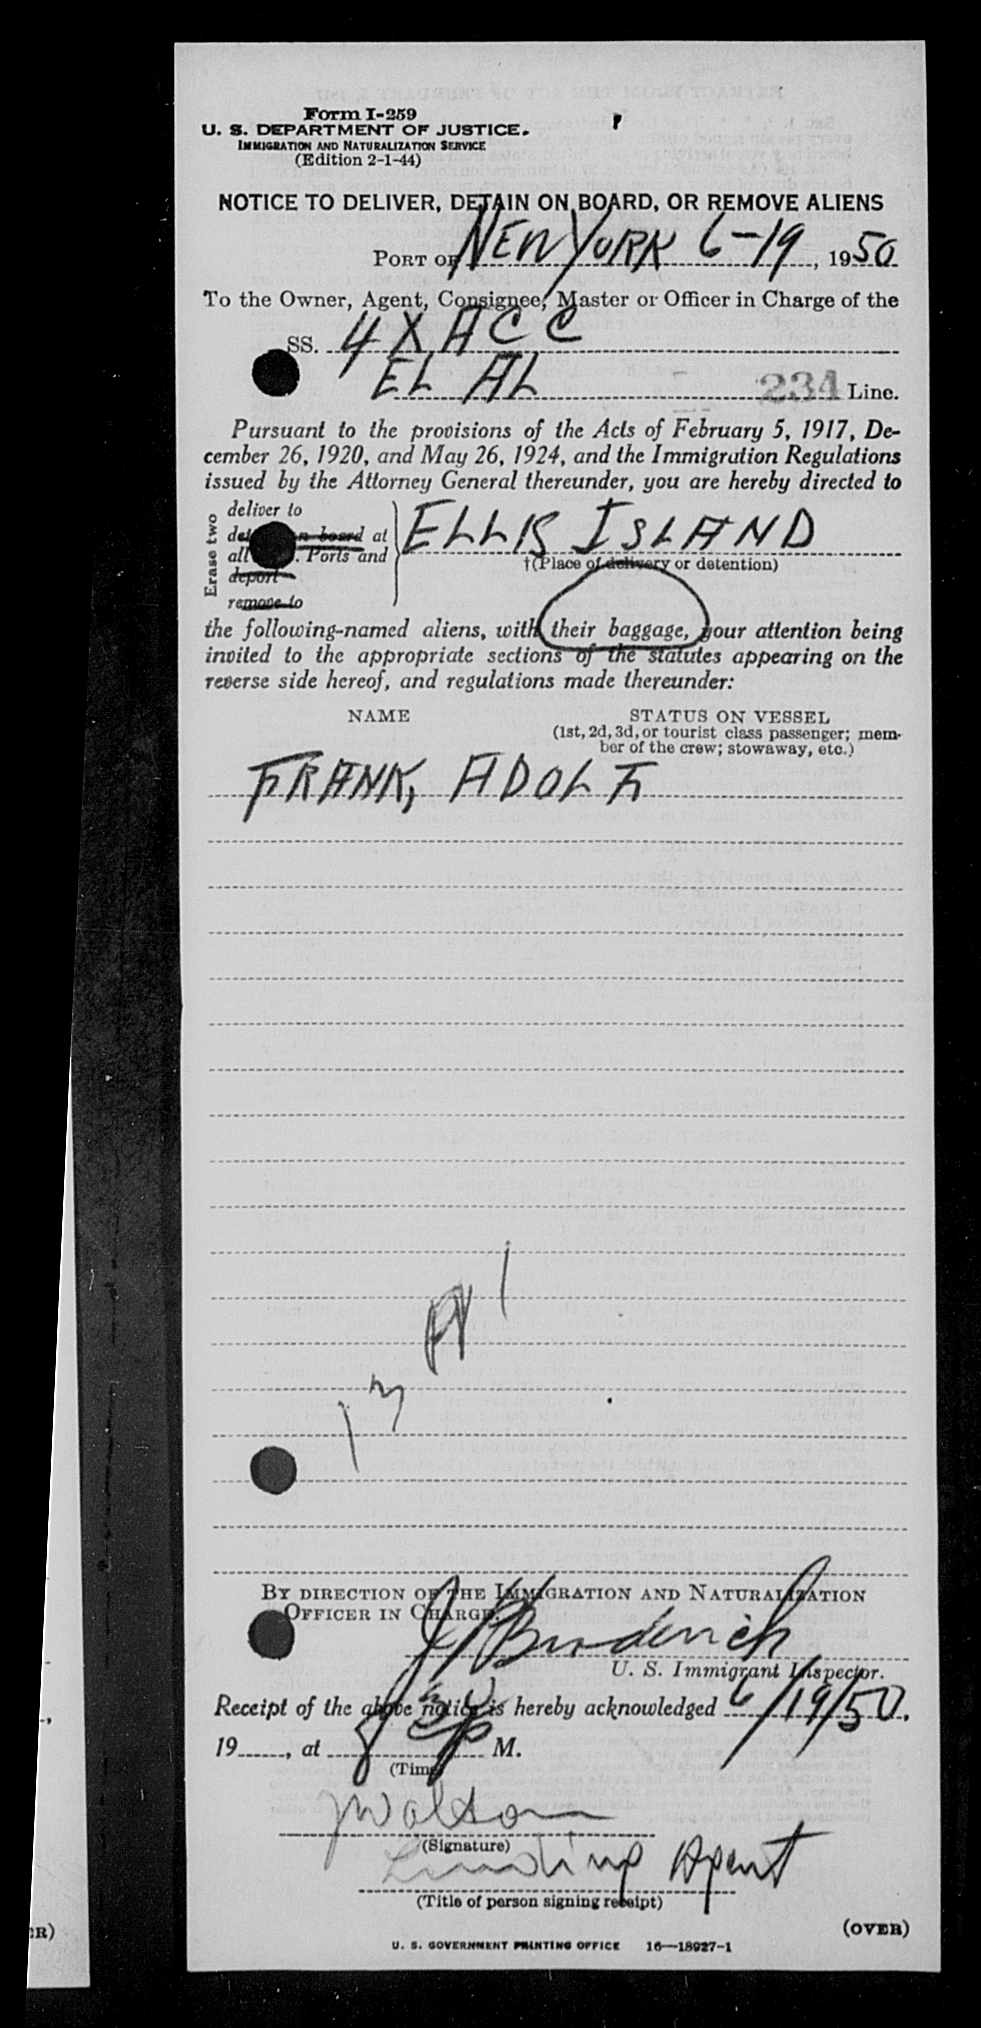 Form I-259
U. S. DEPARTMENT OF JUSTICE.
IMMIGRATION AND NATURALIZATION SERVICE
(Edition 2-1-44)
NOTICE TO DELIVER, DETAIN ON BOARD, OR REMOVE ALIENS
PORT OF NEW YORK 6-19, 1950
To the Owner, Agent, Consignee, Master or Officer in Charge of the
SS. 4XACC
EL AL 234 Line.
Pursuant to the provisions of the Acts of February 5, 1917, De-
cember 26, 1920, and May 26, 1924, and the Immigration Regulations
issued by the Attorney General thereunder, you are hereby directed to
Erase two
deliver to
board at
all Ports and
deport
remove to
ELLIS ISLAND
†(Place of delivery or detention)
the following-named aliens, with their baggage, your attention being
invited to the appropriate sections of the statutes appearing on the
reverse side hereof, and regulations made thereunder:
NAME STATUS ON VESSEL
(1st, 2d, 3d, or tourist class passenger; mem-
ber of the crew; stowaway, etc.)
FRANK, ADOLF
BY DIRECTION OF THE IMMIGRATION AND NATURALIZATION
OFFICER IN CHARGE.
U. S. Immigrant Inspector.
Receipt of the above notice is hereby acknowledged 6/19/50,
19, at M.
(Time)
J Watson
(Signature)
Agent
(Title of person signing receipt)
(OVER)
U. S. GOVERNMENT PRINTING OFFICE 16—18927-1
ER)